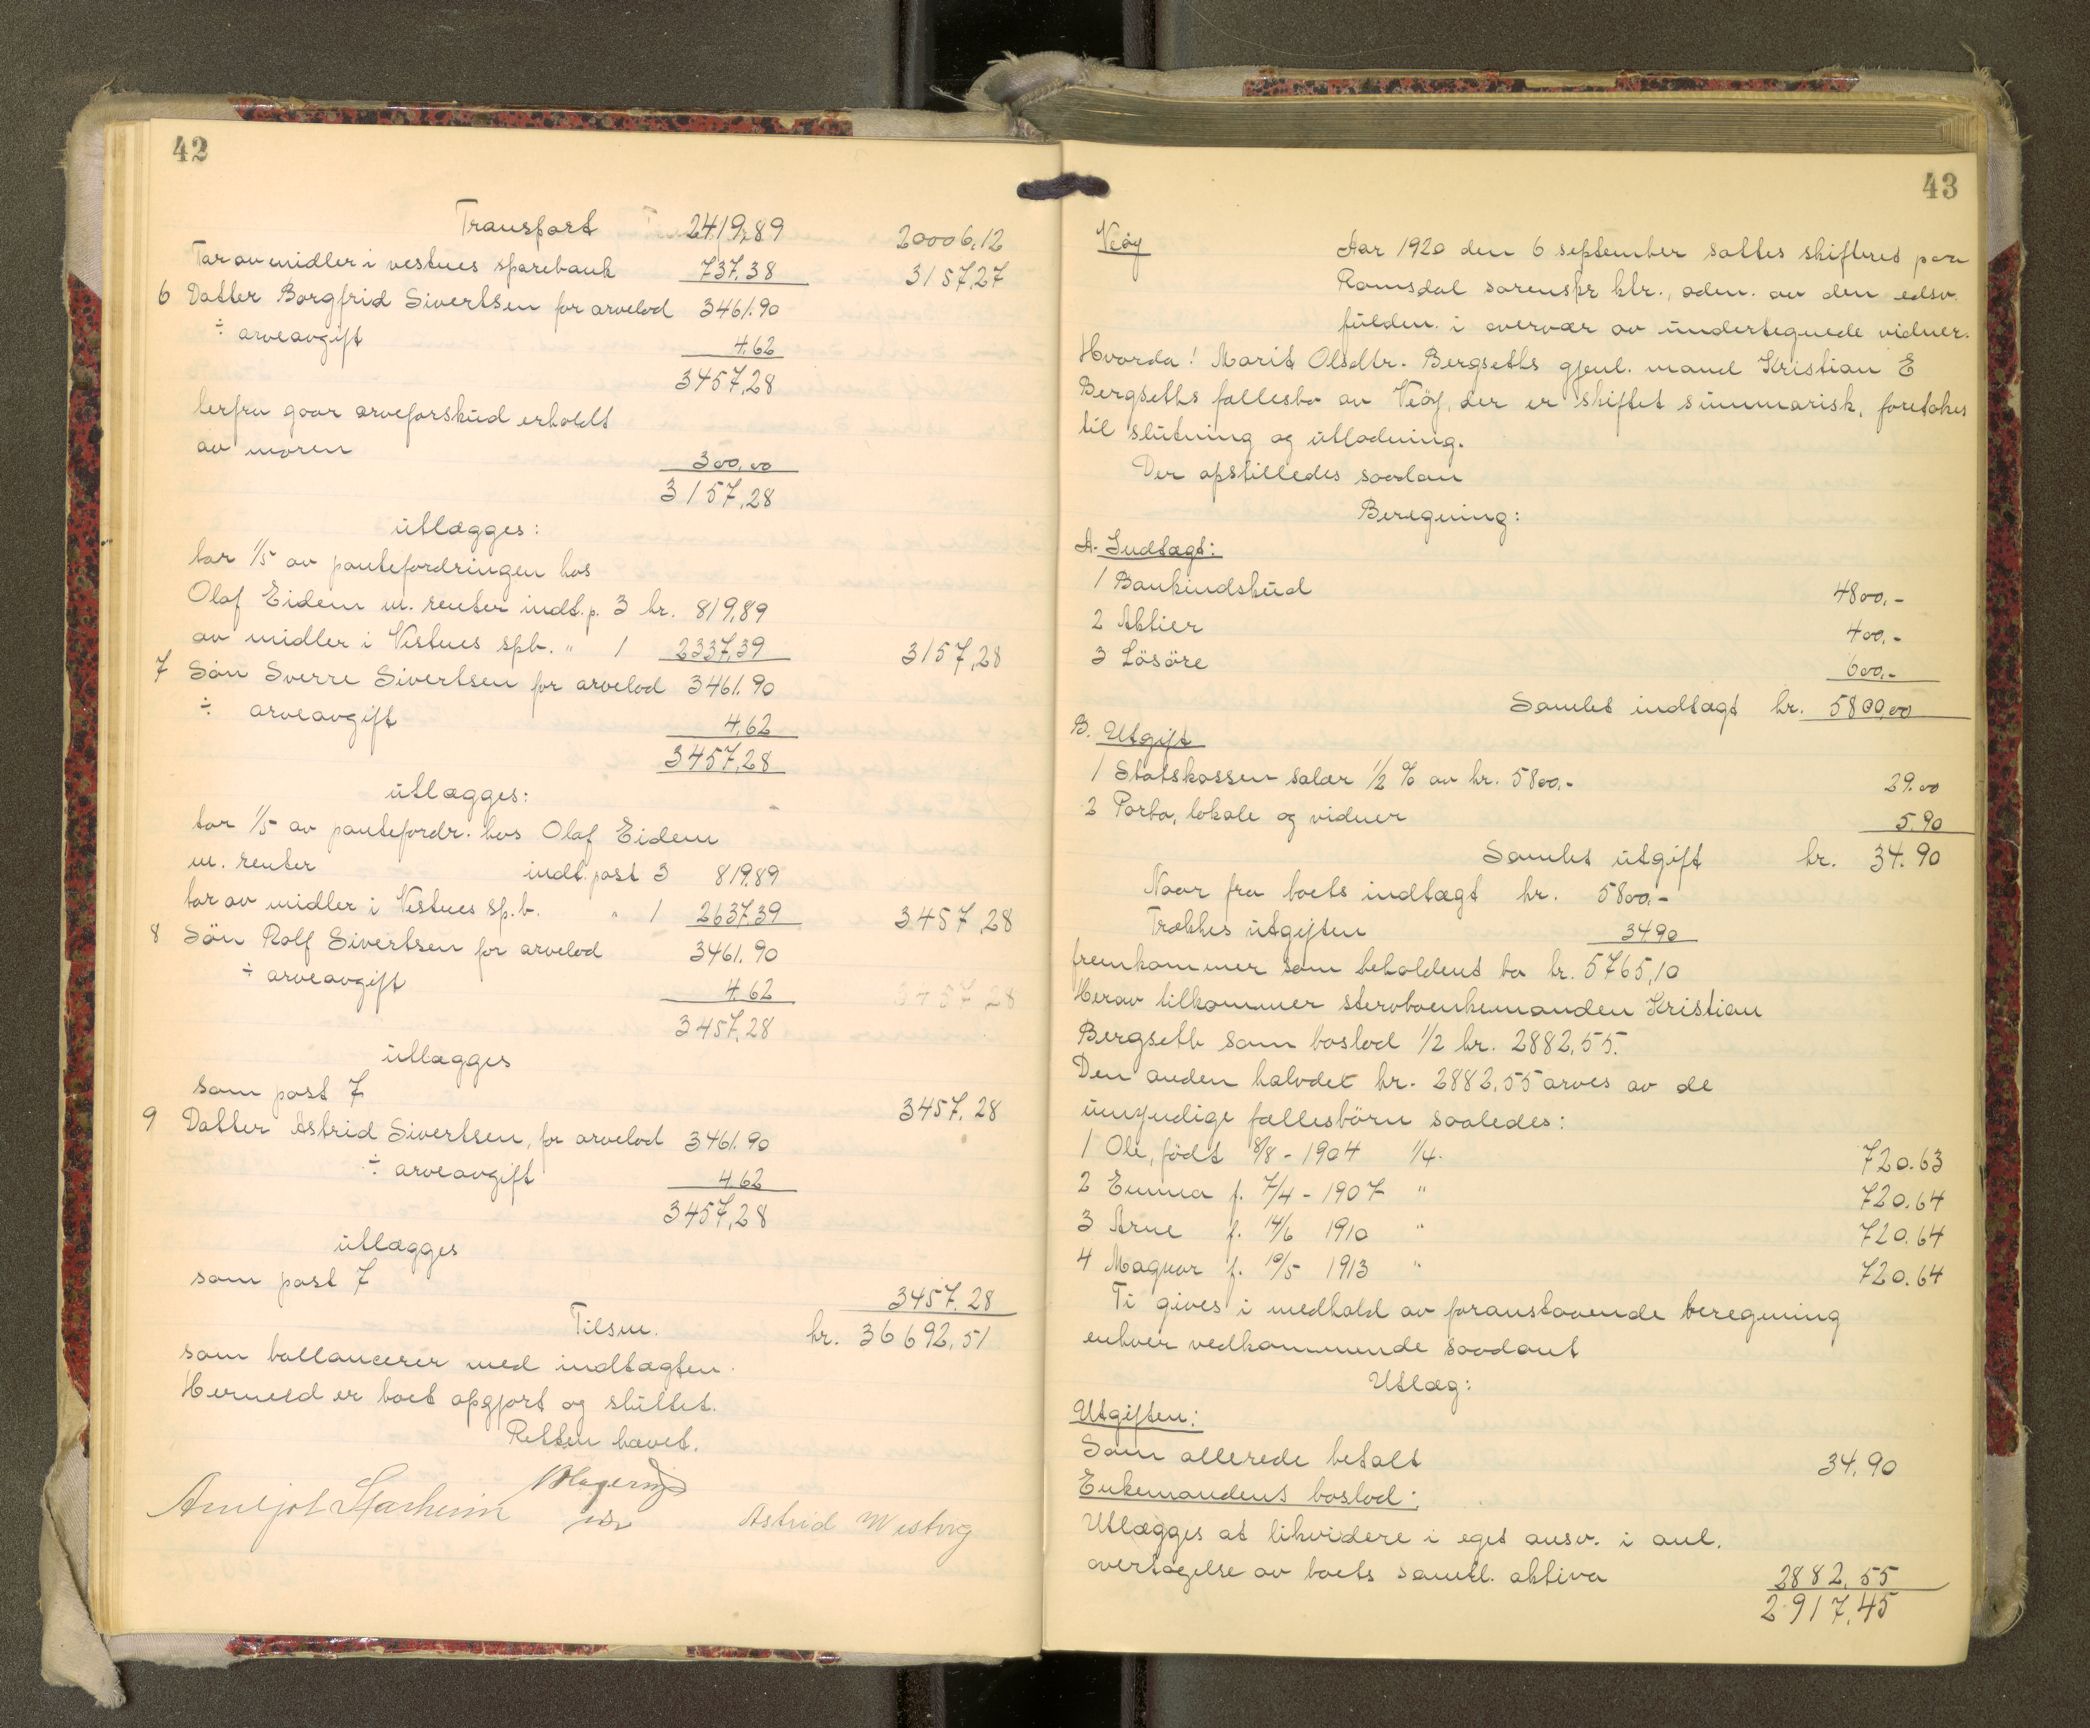 42
Transport 2419,89 20006,12
Tar av midler i vestnes sparebank 737,38 3157,27
6 Datter Borgfrid Sivertsen for arvelod 3461.90
÷ arveavgift 4,62
3457,28
herfra gaar arveforskud erholdt
av moren 300,00
3157,28
utlægges:
tar 1/5 av pantefordringen hos
Olaf Eidem m. renter indt.p. 3 kr. 819,89
av midler i Vestnes spb. " 1 2337,39 3157,28
7 Sön Sverre Sivertsen for arvelod 3461.90
÷ arveavgift 4,62
3457,28
utlægges:
tar 1/5 av pantefordr. hos Olaf Eidem
m. renter indt. post 3 819,89
tar av midler i Vestnes sp.b. " 1 2637,39 3457,28
8 Sön Rolf Sivertsen for arvelod 3461.90
÷ arveavgift 4,62
3457,28
utlægges
som post 7 3457,28
9 Datter Astrid Sivertsen, for arvelod 3461.90
÷ arveavgift 4,62
3457,28
utlægges
som post 7 3457,28
Tilsm. kr. 36692,51
som ballancerer med indtægten.
Hermed er boet opgjort og sluttet.
Retten hævet.
Astrid
43
Veöy
Aar 1920 den 6 september sattes skifteret paa
Romsdal sorenskr ktr., adm. av den edsv.
fuldm. i overvær av undertegnede vidner.
Hvorda! Marit Olsdtr. Bergseths gjenl. mand Kristian E
Bergseths fællesbo av Veöy, der er skiftet summarisk, foretokes
til slutning og utlodning.
Der opstilledes saadan
Beregning:
A. Indtægt:
1 Bankindskud 4800,-
2 Aktier 400,-
3 Lösöre 600,-
Samlet indtægt kr. 5800,00
B. Utgift
1 Statskassen salær 1/2 % av kr. 5800,- 29.00
2 Porto, lokale og vidner 5.90
Samlet utgift kr. 34.90
Naar fra boets indtægt kr. 5800,-
Trækkes utgiften 34 90
fremkommer som beholdent bo kr. 5765,10
Herav tilkommer stervboenkemanden Kristian
Bergseth som boslod 1/2 kr. 2882,55.
Den anden halvdel kr. 2882,55 arves av de
umyndige fællesbörn saaledes:
1 Ole, födt 8/8 - 1904 1/4. 720.63
2 Emma f. 7/4 - 1907 " 720.64
3 Arne f. 14/6 1910 " 720.64
4 Magnar f. 10/5 1913 " 720.64
Ti gives i medhold av foranstaaende beregning
enhver vedkommende saadant
Utlæg:
Utgiften:
Som allerede betalt 34.90
Enkemandens boslod:
Utlægges at likvidere i eget ansv. i anl.
overtagelse av boets samtl. aktiva 2882,55
2917,45